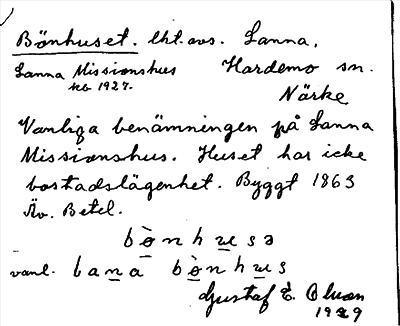 Bönhuset. lht. avs. Lanna,
Lanna Missionshus Hardemo sn.
kb 1927. Närke
Vanliga benämningen på Lanna
Missionshus. Huset har icke
bostadslägenhet. Byggt 1863
Äv. Betel.
bò̱nhu̱sə
vanl. lana bò̱nhu̱s
Gustaf E.
1929